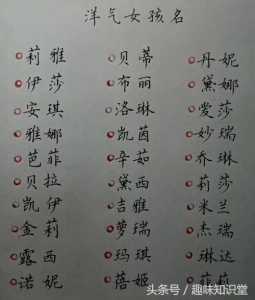 洋气女孩名
莉雅 贝蒂 丹妮
伊莎 布丽 黛娜
安琪 洛琳 爱莎
雅娜 凯茵 妙瑞
芭菲 辛如 乔琳
贝拉 黛西 莉莎
凯伊 吉雅 米兰
金莉 萝瑞 杰瑞
露西 玛琪 琳达
诺妮 蓓姬
头条号/趣味知识堂